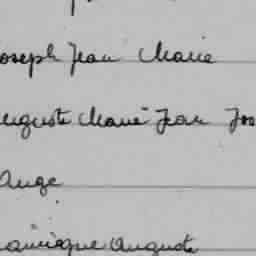 oseph Jean Marie
uguste Marie Jean Jos
Ange
auguste